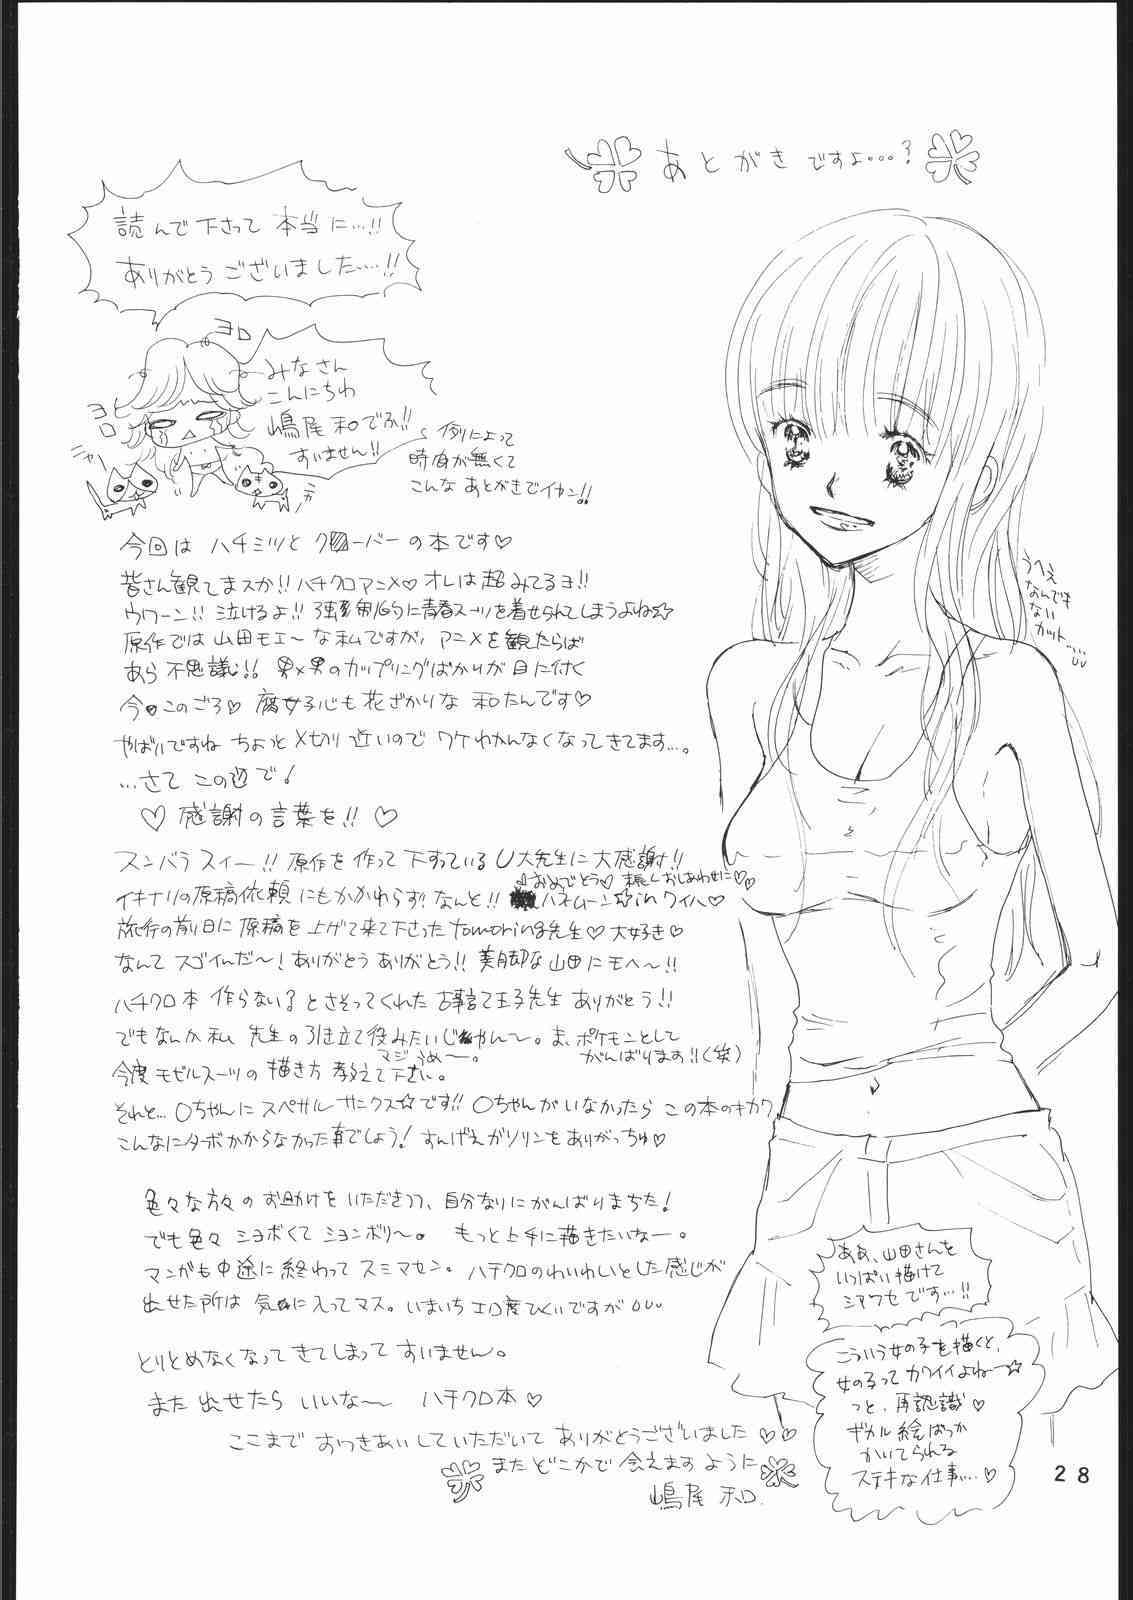 あとがきですよ…?
読んで下さって本当に…!!
ありがとうございました…!!
ヨロ
ヨロ
ニャー
みなさん
こんにちわ
嶋尾和でふ!!
すいません!!
例によって
時間が無くて
こんなあとがきでイカン!!
今回はハチミツとクローバーの本です♡
皆さん観てまスか!!ハチクロアニメ♡オレは超みてるヨ!!
ウワーン!!泣けるよ!!強制的に青春スーツを着せられてしまうよね☆
原作では山田モエ〜な私ですが、アニメを観たらば
あら不思議!!男×男のカップリングばかりが目に付く
今このごろ♡腐女子心も花ざかりな和たんです♡
やばいですねちょっと〆切り近いのでワケわかんなくなってきてます…。
…さてこの辺で!
♡感謝の言葉を!!♡
スンバラスィー!!原作を作って下すっているU大先生に大感謝!!
イキナリの原稿依頼にもかかわらず!なんと!!
おめでとう♡末長くおしあわせに♡♡
ハネムーン☆inワイハ♡
旅行の前日に原稿を上げて来て下さったtomoring先生♡大好き♡
なんてスゴイんだ〜!ありがとうありがとう!!美脚な山田にモヘ〜!!
ハチクロ本作らない?とさそってくれた古事記王子先生ありがとう!!
でもなんか私先生の引き立て役みたいじゃん〜。ま、ポケモンとして
がんばります!!(笑)
マジうめ〜。
今度モゼルスーツの描き方教えて下さい。
それと…○ちゃんにスペサルサンクス☆です!!○ちゃんがいなかったらこの本のキカク
こんなにターボかからなかった事でしょう!すんげえガソリンをありがっちゅ♡
色々な方々のお助けをいただきつつ、自分なりにがんばりまちた!
でも色々ショボくてションボリ〜。もっと上手に描きたいなー。
マンガも中途に終わってスミマセン。ハチクロのわいわいとした感じが
出せた所は気に入ってマス。いまいちエロ度ひくいですが
とりとめなくなってきてしまってすいません。
また出せたらいいな〜ハチクロ本♡
ここまでおつきあいしていただいてありがとうございました♡♡
またどこかで会えますように
嶋尾和.
うへえ
なんでも
ない
カット…
ああ、山田さんを
いっぱい描けて
シアワセです…!!
こういう女の子を描くと、
女の子ってカワイイよね〜☆
っと、再認識♡
ギガル絵ばっか
かいてられる
ステキな仕事…♡
28